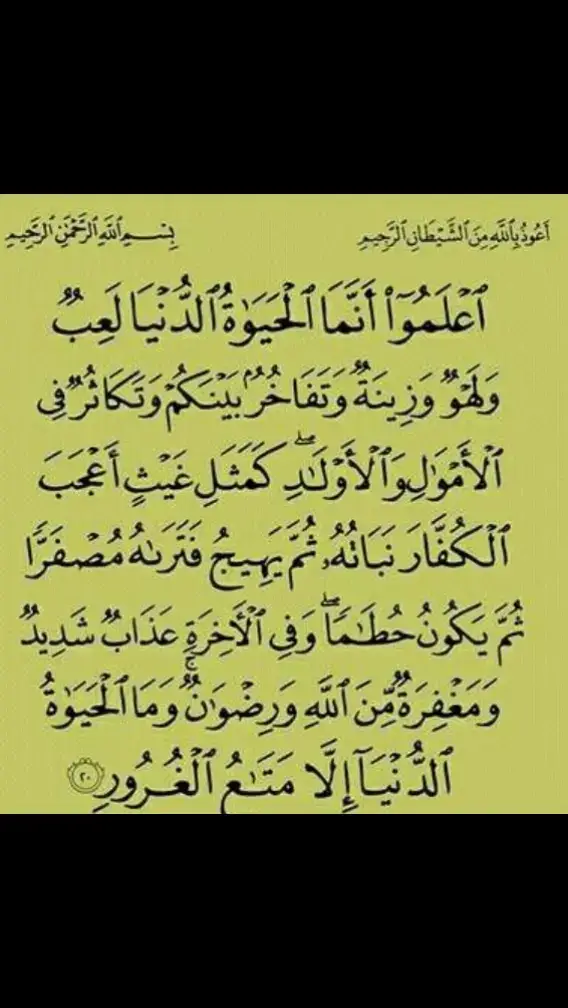 أَعُوذُ بِٱللَّهِ مِنَ ٱلشَّيْطَانِ ٱلرَّجِيمِ
بِسْمِ ٱللَّهِ ٱلرَّحْمَٰنِ ٱلرَّحِيمِ
ٱعْلَمُوٓا۟ أَنَّمَا ٱلْحَيَوٰةُ ٱلدُّنْيَا لَعِبٌ
وَلَهْوٌ وَزِينَةٌ وَتَفَاخُرٌۢ بَيْنَكُمْ وَتَكَاثُرٌ فِى
ٱلْأَمْوَٰلِ وَٱلْأَوْلَٰدِ ۖ كَمَثَلِ غَيْثٍ أَعْجَبَ
ٱلْكُفَّارَ نَبَاتُهُۥ ثُمَّ يَهِيجُ فَتَرَىٰهُ مُصْفَرًّا
ثُمَّ يَكُونُ حُطَٰمًا ۖ وَفِى ٱلْءَاخِرَةِ عَذَابٌ شَدِيدٌ
وَمَغْفِرَةٌ مِّنَ ٱللَّهِ وَرِضْوَٰنٌ ۚ وَمَا ٱلْحَيَوٰةُ
ٱلدُّنْيَآ إِلَّا مَتَٰعُ ٱلْغُرُورِ ٢٠